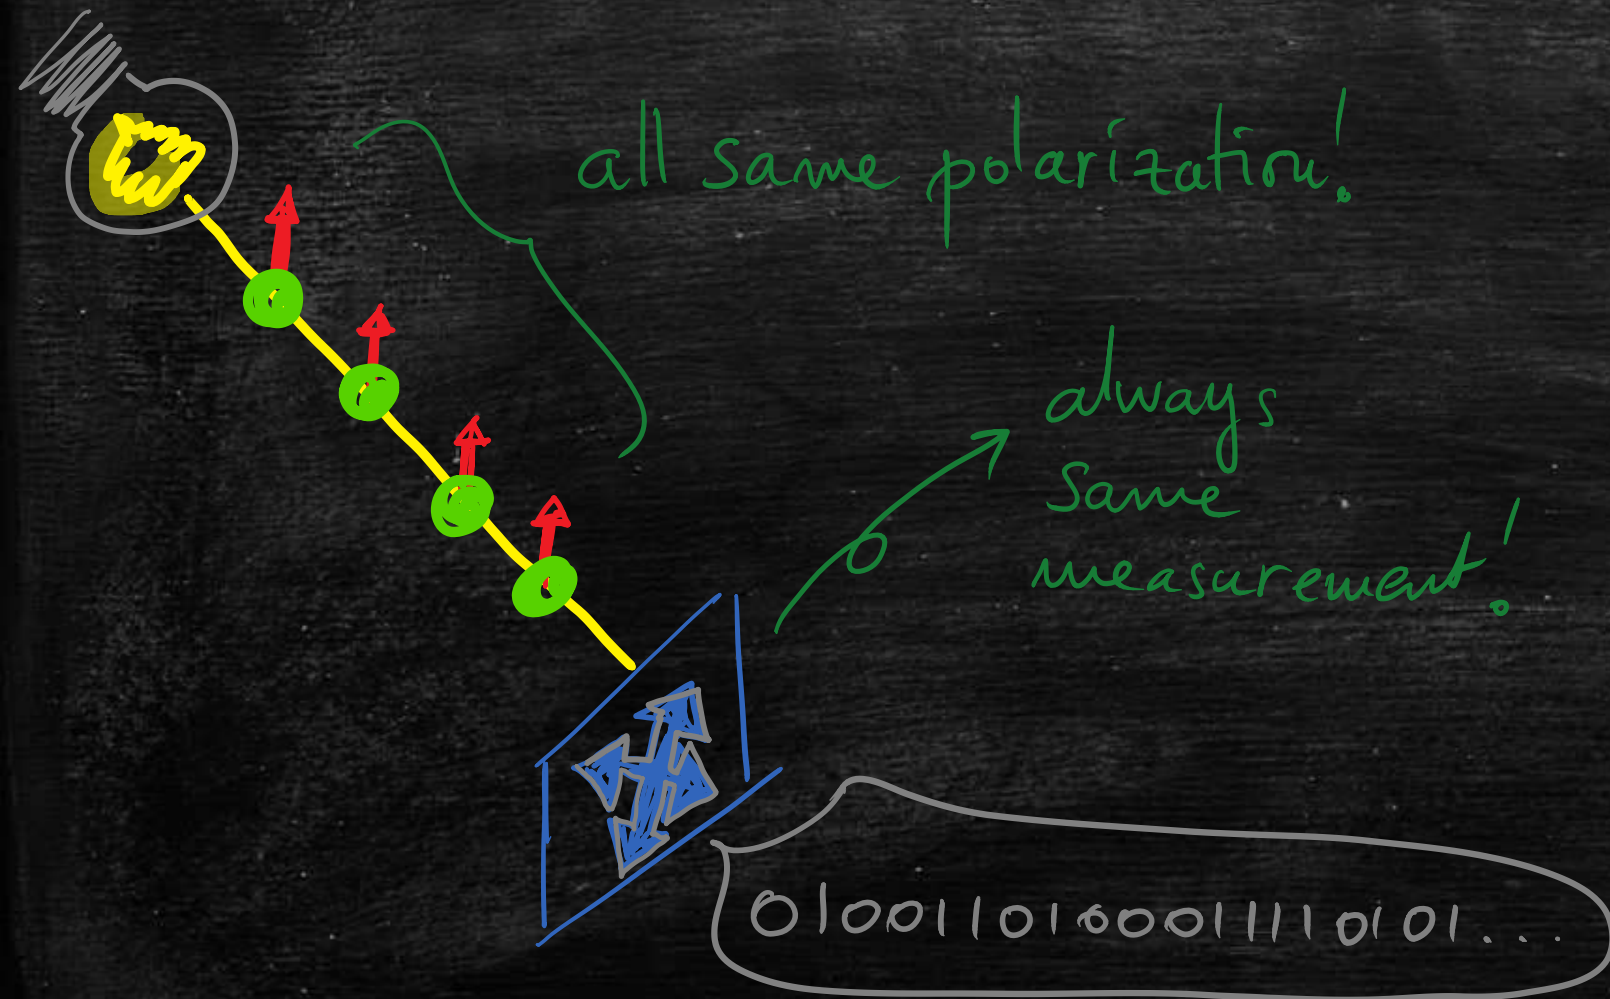 all same polarization!
always
same
measurement!
0100110100011110101...